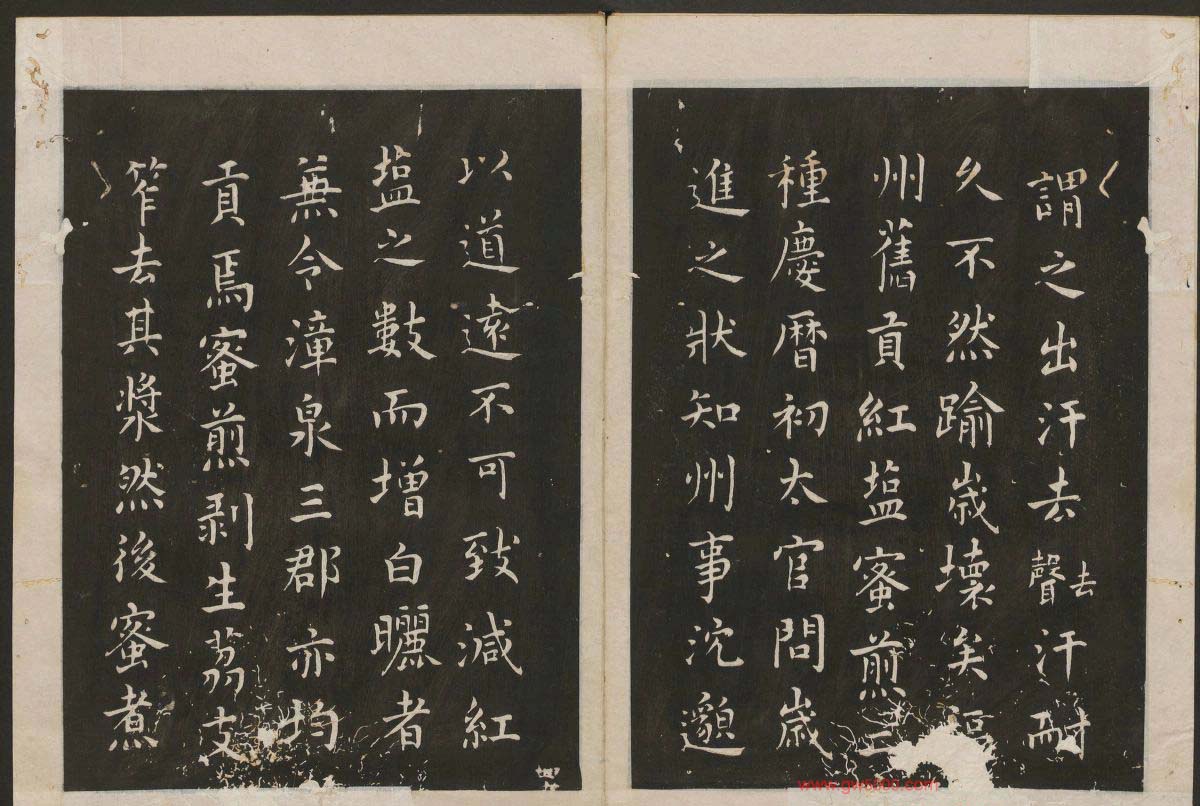 謂之出汗去去聲汗耐
久不然踰歲壞矣福
州舊貢紅塩蜜煎
種慶曆初太官問歲
進之狀知州事沈邈
以道遠不可致減紅
塩之數而增白曬者
兼令漳泉三郡亦均
貢焉蜜煎剥生荔支
笮去其漿然後蜜煮